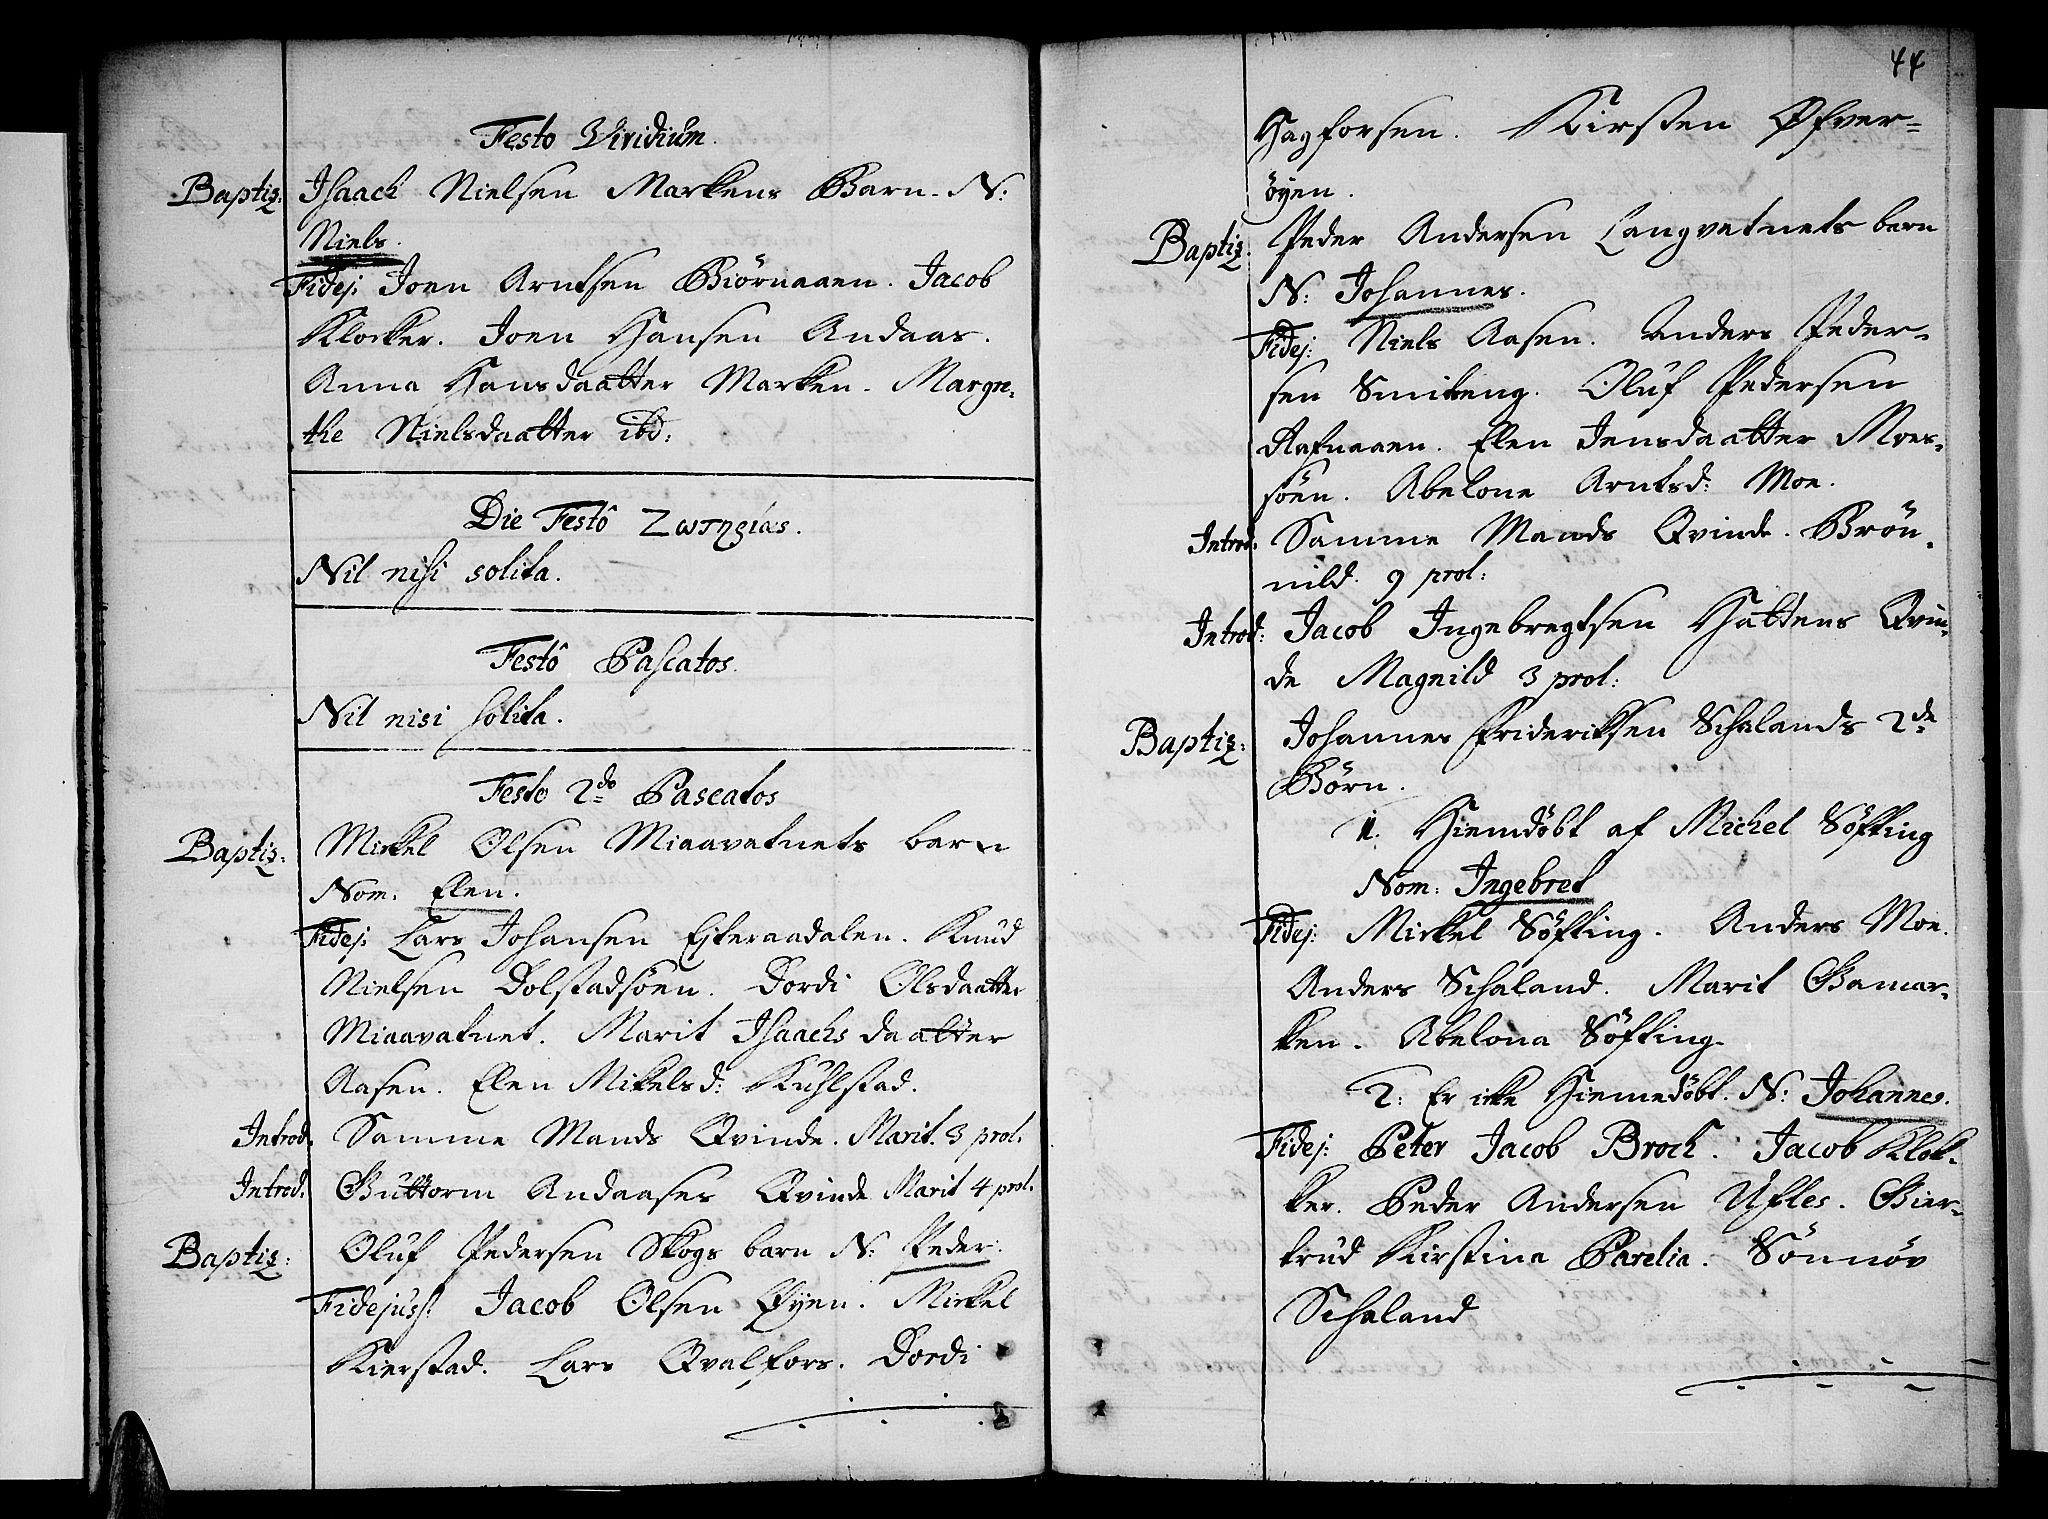 Festo Viridium.
Baptiz: Isaach Nielsen Markens Barn. N:
Niels.
Fidej: Joen Arntsen Biörnaaen. Jacob
Klocker. Joen Hansen Andaas.
Anna Hansdaatter Marken. Margre-
the Nielsdaatter ibd:
Die Festô Σωτηρίας.
Nil nisi solita.
Festô Pascatos.
Nil nisi solita.
Festo 2do Pascatos
Baptiz: Mickel Olsen Miaavatnets barn
Nom. Elen.
Fidej: Lars Johansen Eiteraadalen. Knud
Nielsen Dolstadsöen. Dordi Olsdaatter
Miaavatnet. Marit Isaachsdaatter
Aasen. Elen Mikelsd: Kuhlstad.
Introd. Samme Mands Qvinde. Marit. 3 prol.
Introd. Guttorm Andaases Qvinde Marit 4 prol.
Baptiz: Oluf Pedersen Skogs barn N: Peder.
Fidejuss: Jacob Olsen Öyen. Mickel
Kierstad. Lars Qvalfors. Dordi
44
Hagforsen. Kirsten Öfver-
öyen.
Baptiz: Peder Andersen Langvatnets barn
N: Johannes.
Fidej: Niels Aasen. Anders Peder-
sen Smiteng. Oluf Pedersen
Rafnaaen. Elen Jensdaatter Moes-
söen. Abelone Arntsd: Moe.
Introd: Samme Mands Qvinde. Brön-
nild. 9 prol:
Introd: Jacob Ingebregtsen Hattens Qvin-
de Magnild 3 prol:
Baptiz: Johannes Frideriksen Schalands 2de
Börn.
1. Hiemdöbt af Michel Söfting
Nom: Ingebret
Fidej: Mickel Söfting. Anders Moe.
Anders Schaland. Marit Gamar-
ken. Abelona Söfting.
2: Er icke Hiemedöbt. N: Johannes.
Fidej: Peter Jacob Brock. Jacob Klok-
ker. Peder Andersen Ufles. Gier-
trud Kirstina Parelia. Sönnöv
Schaland